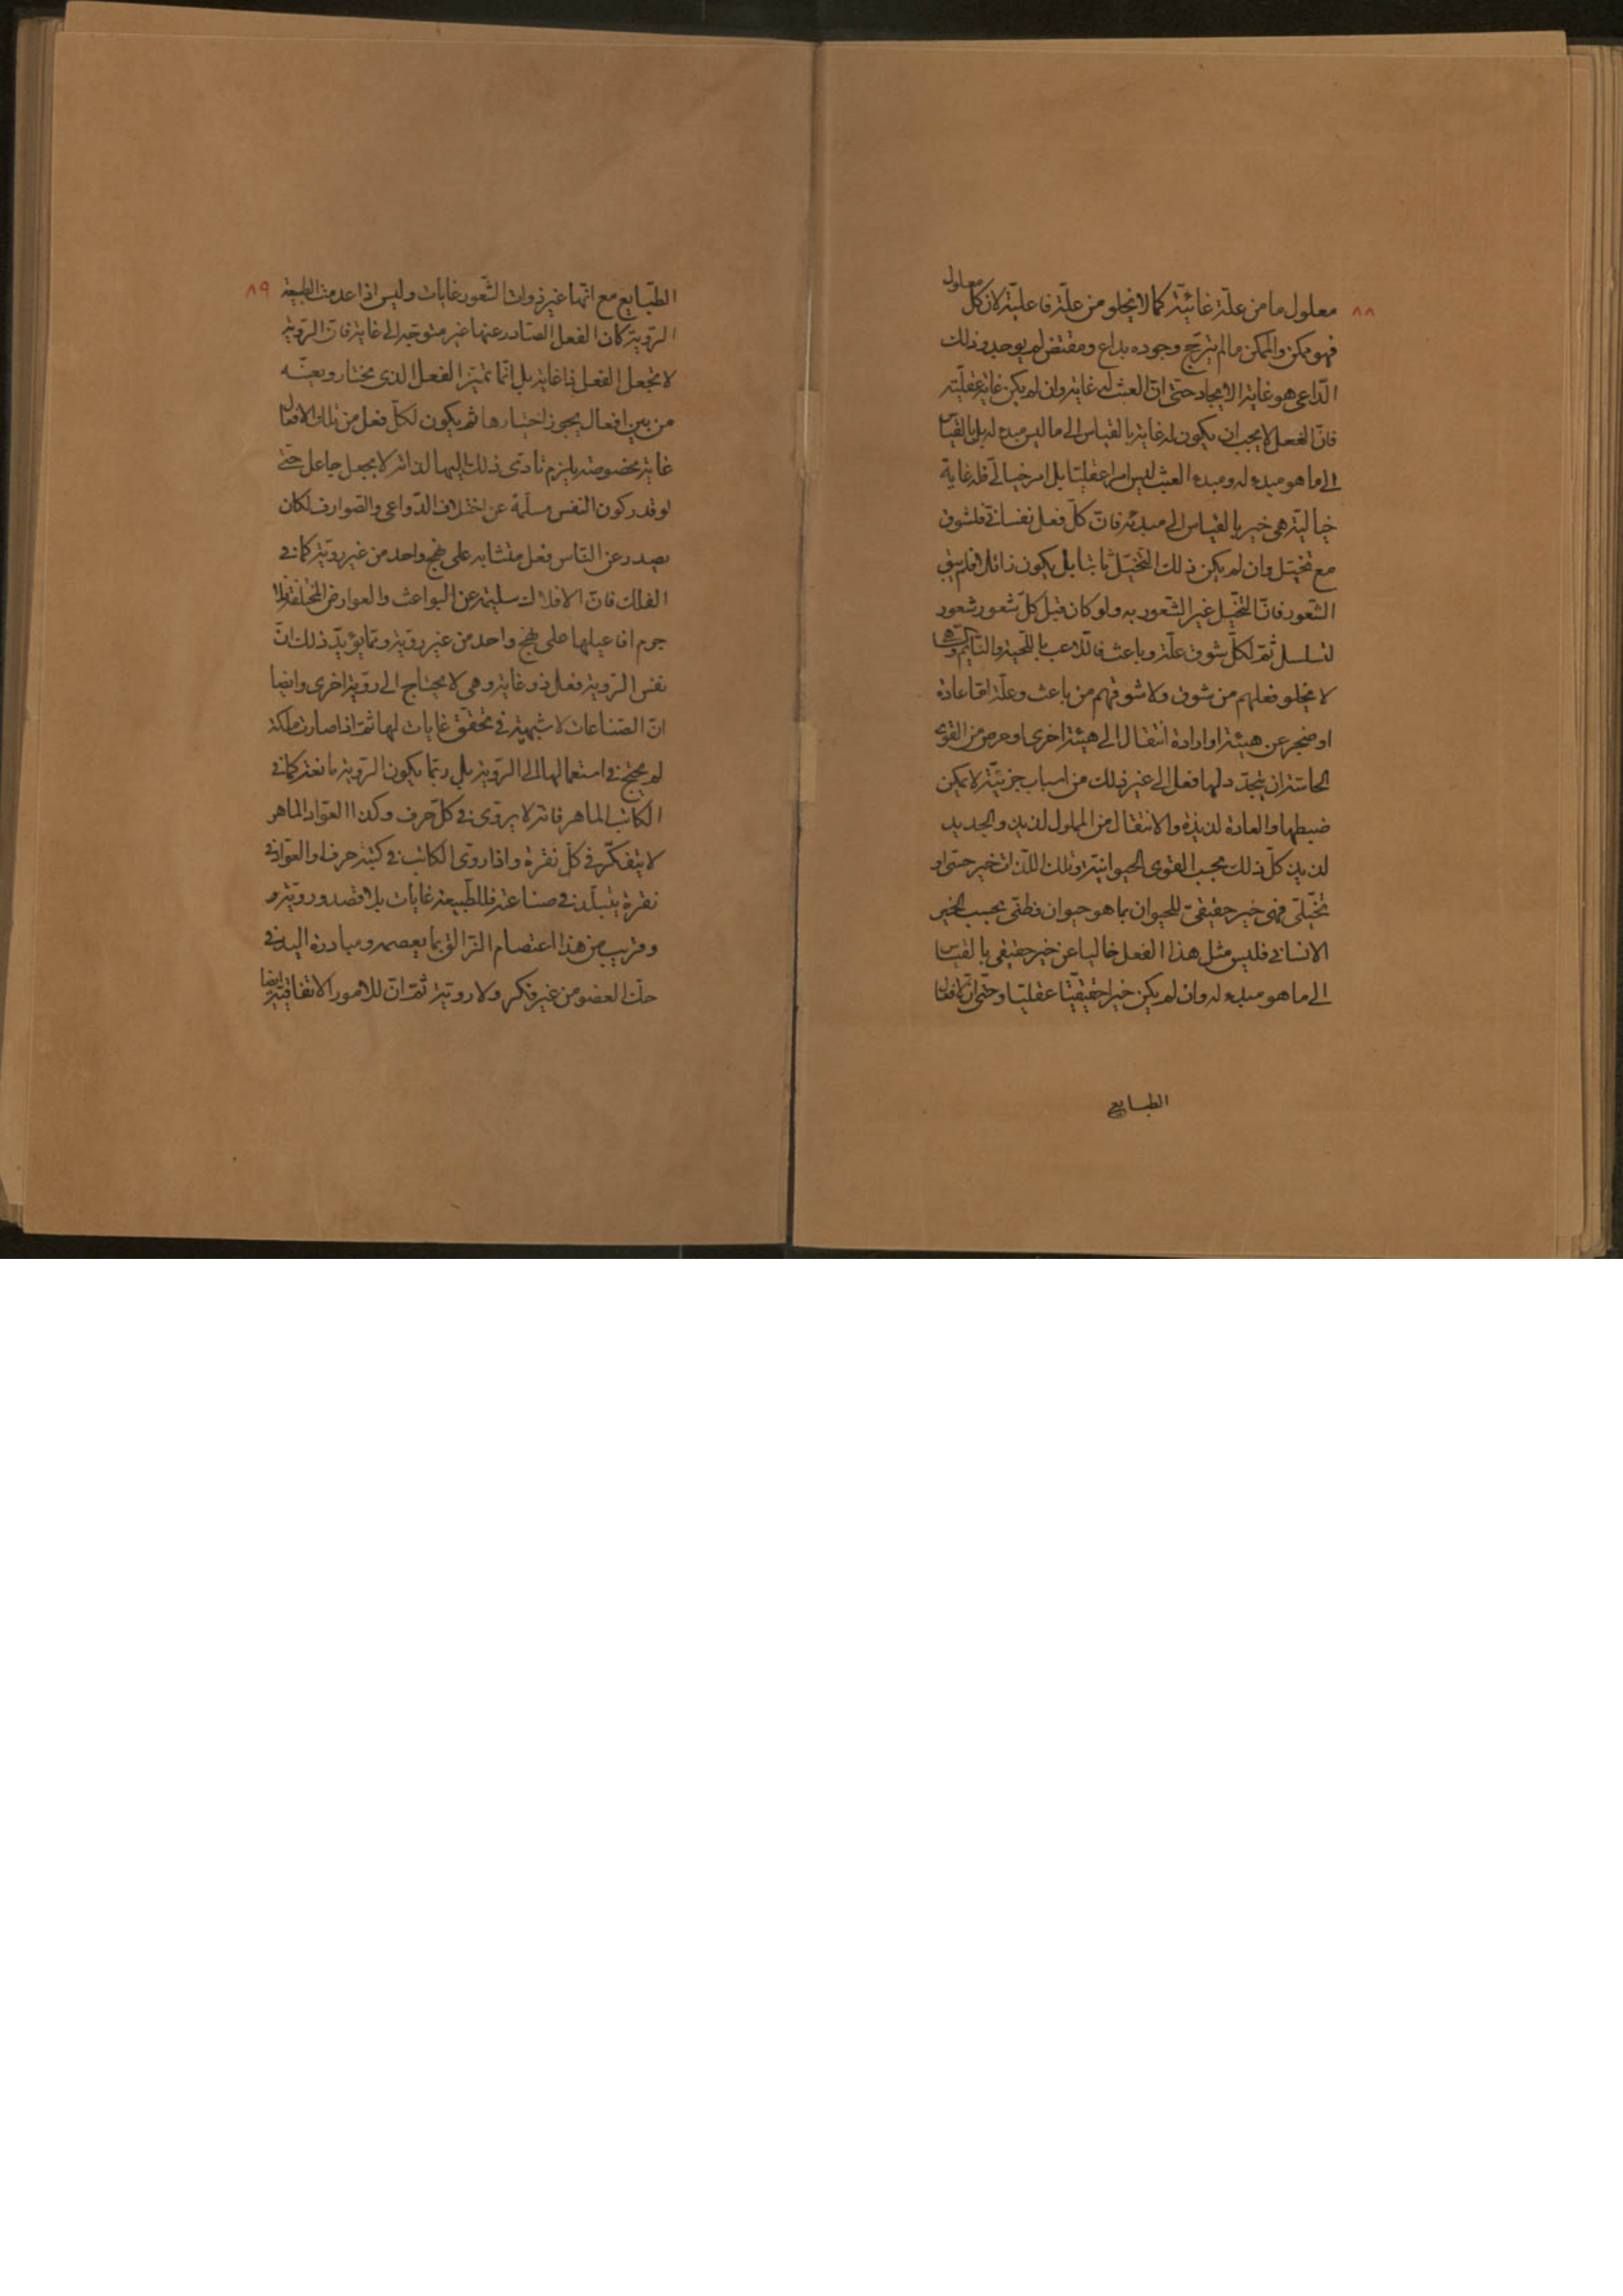 ٨٨
معلول ما من علّة غائيّة كما لا يخلو من علّة فاعليّة لان كلّ معلول
فهو ممكن والممكن ما لم يترجّح وجوده بداع ومقتض لم يوجد وذلك
الدّاعى هو غاية الايجاد حتّى انّ العبث له غاية وان لم يكن غاية عقليّة
فانّ الفعل لا يجب ان يكون له غاية بالقياس الى ما ليس مبدء له بل بالقياس
الى ما هو مبدء له ومبدء العبث ليس امرا عقليّا بل امر خيالّى فله غاية
خياليّة هى خير بالقياس الى مبدئه فانّ كلّ فعل نفسانّى فلشوق
مع تخيّل وان لم يكن ذلك التخيّل ثابتا بل يكون زائلا فلم يبق
الشّعور فانّ التخيّل غير الشّعور به ولو كان قبل كلّ شعور شعور
لتسلسل ثمّ لكلّ شوق علّة وباعث فاللّاعب باللّحية والنّايم وغيرهما
لا يخلو فعلهم من شوق ولا شوقهم من باعث وعلّة امّا عادة
او ضجر عن هيئة او ارادة انتقال الى هيئة اخرى او حرص من القوى
الحاسّة ان يتجدّد لها فعل الى غير ذلك من اسباب جزئيّة لا يمكن
ضبطها والعادة لذيذة والانتقال من المملول لذيذ والجديد
لذيذ كلّ ذلك بحسب القوى الحيوانيّة وتلك اللّذات خير حسّى او
تخيّلى فهى خير حقيقىّ للحيوان بما هو حيوان ظنّى بحسب الخير
الانسانى فليس مثل هذا الفعل خاليا عن خير حقيقى بالقياس
الى ما هو مبدء له وان لم يكن خيرا حقيقيّا عقليّا وحتّى انّ لافعال
الطبايع
٨٩
الطّبايع مع انّها غير ذوات الشّعور غايات وليس اذا عدمت الطبيعة
الرّويّة كان الفعل الصّادر عنها غير متوجّه الى غاية فانّ الرّويّة
لا تجعل الفعل ذا غاية بل انّما تميّز الفعل الذى يختار ويعيّنه
من بين افعال يجوز اختيارها ثم يكون لكلّ فعل من تلك الافعال
غاية مخصوصة يلزم تادّى ذلك اليها لذاته لا بجعل جاعل حتّى
لو قدر كون النفس مسلّمة عن اختلاف الدّواعى والصّوارف لكان
يصدر عن النّاس فعل متشابه على نهج واحد من غير رويّة كما فى
الفلك فانّ الافلاك سليمة عن البواعث والعوارض المختلفة فلا
جرم افاعيلها على نهج واحد من غير رويّة وممّا يؤيّد ذلك انّ
نفس الرّويّة فعل ذو غاية وهى لا يحتاج الى رويّة اخرى وايضا
انّ الصّناعات لا شبهة فى تحقّق غايات لها ثمّ اذا صارت ملكة
لم يحتج فى استعمالها الى الرّويّة بل ربّما يكون الرّويّة مانعة كما فى
الكاتب الماهر فانّه لا يروّى فى كلّ حرف وكذا العوّاد الماهر
لا يتفكّر فى كلّ نقرة واذا روّى الكاتب فى كتبه حرفا او العوّاد فى
نقرة يتبلّد فى صناعته فللطّبيعة غايات بلا قصد ورويّة و
وقريب من هذا اعتصام الزّالق بما يعصمه ومبادرة اليد فى
حكّ العضو من غير فكر ولا رويّة ثمّ انّ للامور الاتفاقيّة ايضا